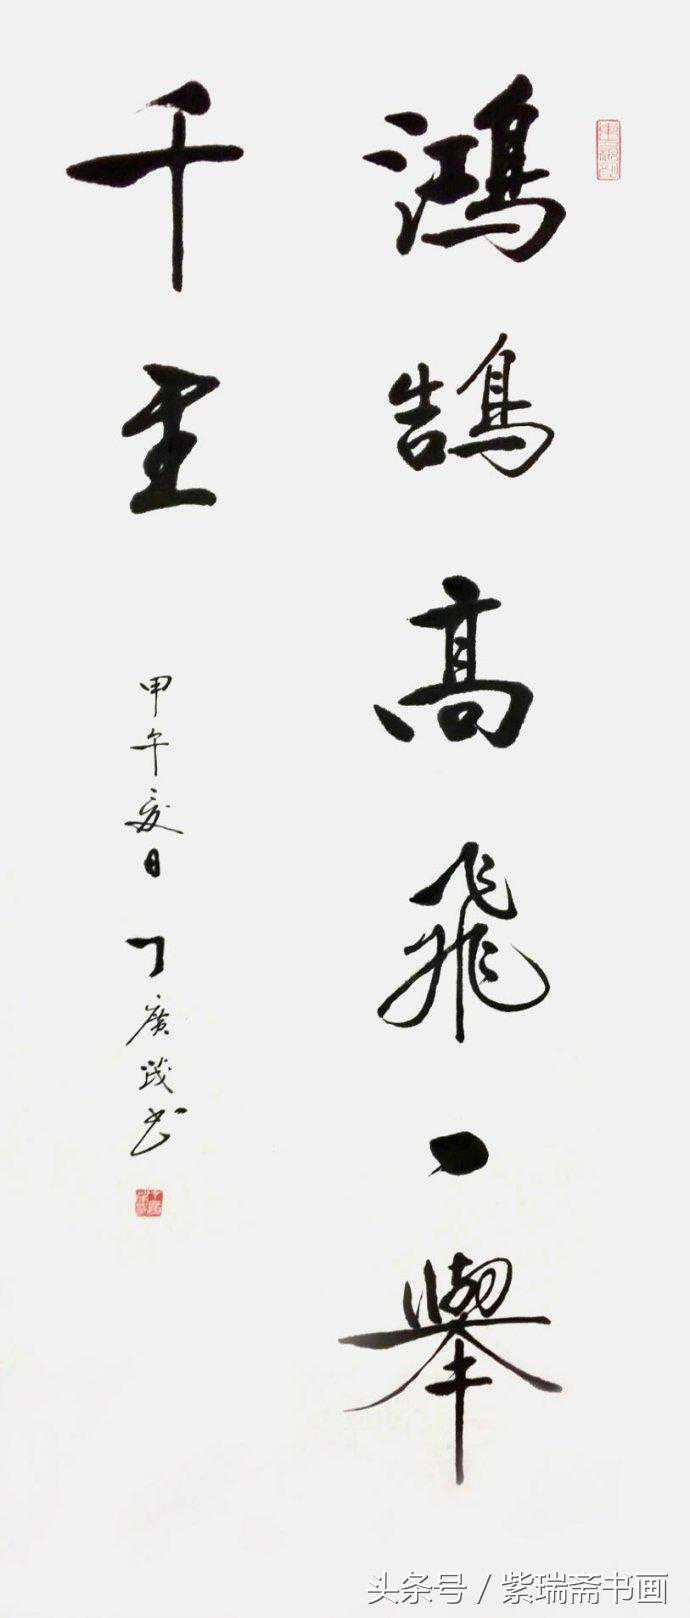 鴻鵠高飛一舉
千里
甲午夏日 丁廣书
头条号 / 紫瑞斋书画